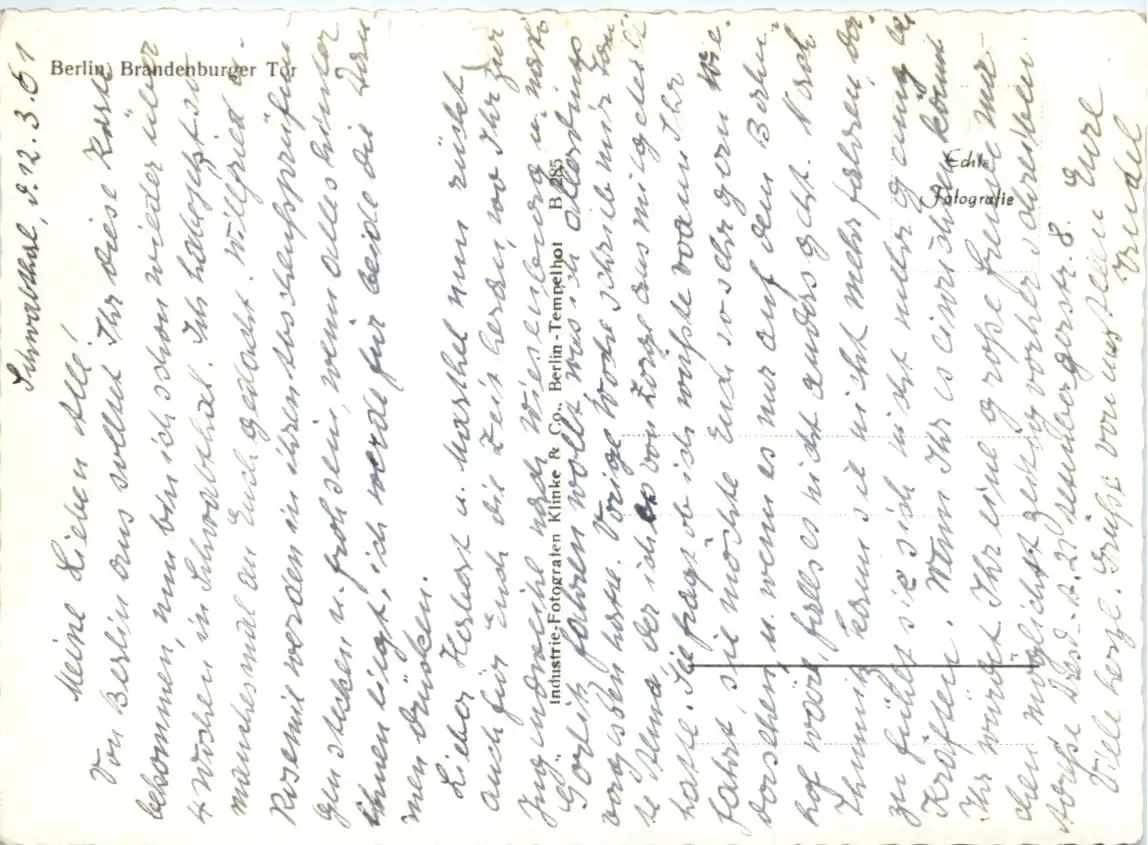 Berlin, Brandenburger Tor
Echte
Fotografie
Industrie-Fotografen Klinke & Co., Berlin-Tempelhof B 285
Schwarbthal, d. 12.3.61
Meine Lieben Alle!
Von Berlin aus solltet Ihr diese Karte
bekommen, nun bin ich schon wieder über
4 Wochen in Schwarbthal. Ich habe oft so
manchesmal an Euch gedacht. Wilfried u.
Rosemie werden in ihren Zwischenprüfun-
gen stecken u. froh sein, wenn alles hinter
ihnen liegt, ich werde für beide die Dau
men drücken.
Lieber Herbert u. Marthel nun rückt
auch für Euch die Zeit heran, wo Ihr zur
Jugendweihe nach u. nach
Gorlitz fahren wollt was ich allerdings
vergessen hatte. Vorige Woche schrieb mir
te Anna der ich es von mitgeteilt
hatte. Sie fragt ob ich wüßte wann Ihr
fahrt, sie möchte Euch so sehr gern
sehen u. wenn es nur auf dem Bahn-
hof wäre, falls es nicht anders geht. Nach
kann sie nicht mehr fahren, da
zu fühlt sie sich nicht mehr genug bei
Kräften. Wenn Ihr es einrichten könnt
Ihr würdet Ihr eine große Freude mit
chen möglichst zeitig vorher schreiben
Adresse Dresd. A. 27 8.
Viele herzl. Grüße von uns allen Eure
Trudel